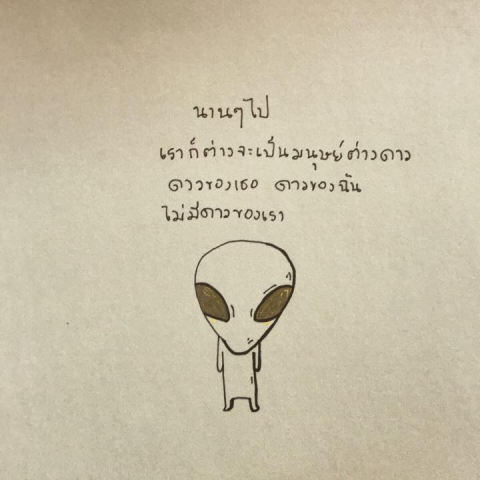 นานๆไป
เราก็ต่างจะเป็นมนุษย์ต่างดาว
ดาวของเธอ ดาวของฉัน
ไม่มีดาวของเรา